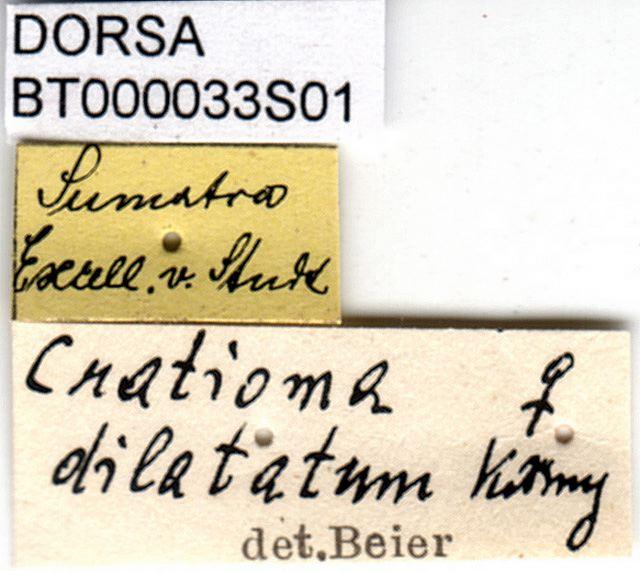 DORSA
BT000033S01
Sumatra
Excell. v. Studt
Cratioma ♀
dilatatum Karny
det. Beier